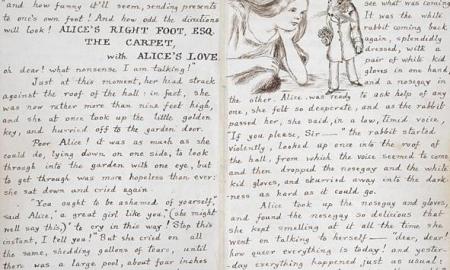 and how funny it'll seem, sending presents
to one's own feet! And how odd the directions
will look! ALICE'S RIGHT FOOT, ESQ.
THE CARPET,
with ALICE'S LOVE
oh dear! what nonsense I am talking!"
Just at this moment, her head struck
against the roof of the hall: in fact, she
was now rather more than nine feet high,
and she at once took up the little golden
key, and hurried off to the garden door.
Poor Alice! it was as much as she
could do, lying down on one side, to look
through into the garden with one eye, but
to get through was more hopeless than ever:
she sat down and cried again.
"You ought to be ashamed of yourself,"
said Alice, "a great girl like you," (she might
well say this,) "to cry in this way! Stop this
instant, I tell you!" But she cried on all
the same, shedding gallons of tears, until
there was a large pool, about four inches
see what was coming.
It was the white
rabbit coming back
again, splendidly
dressed, with a
pair of white kid
gloves in one hand,
and a nosegay in
the other. Alice was ready to ask help of any
one, she felt so desperate, and as the rabbit
passed her, she said, in a low, timid voice,
"If you please, Sir——" the rabbit started
violently, looked up once into the roof of
the hall, from which the voice seemed to come
and then dropped the nosegay and the white
kid gloves, and skurried away into the dark-
-ness as hard as it could go.
Alice took up the nosegay and gloves,
and found the nosegay so delicious that
she kept smelling at it all the time she
went on talking to herself— "dear, dear!
how queer everything is today! and yester-
-day everything happened just as usual: